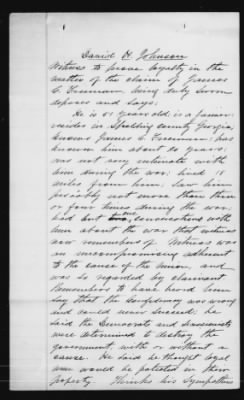 David H. Johnson
Witness to prove loyalty in the
matter of the claim of James
C. Freeman, being duly sworn
deposes and says:
He is 51 years old is a farmer
resides in Spalding county Georgia,
knows James C. Freeman: has
known him about 20 years;
was not very intimate with
him during the war; lived 18
miles from him; saw him
probably not more than three
or four times during the war.
had but one conversations with
him about the war that witness
now remembers of. Witness was
an uncompromising adherent
to the cause of the Union, and
was so regarded by claimant
Remembers to have heard him
say that the Confederacy was wrong
and could never succeed: he
said the Democrats and Secessionists
were determined to destroy the
government with or without a
cause. He said he thought loyal
men would be protected in their
property. Thinks his sympathies